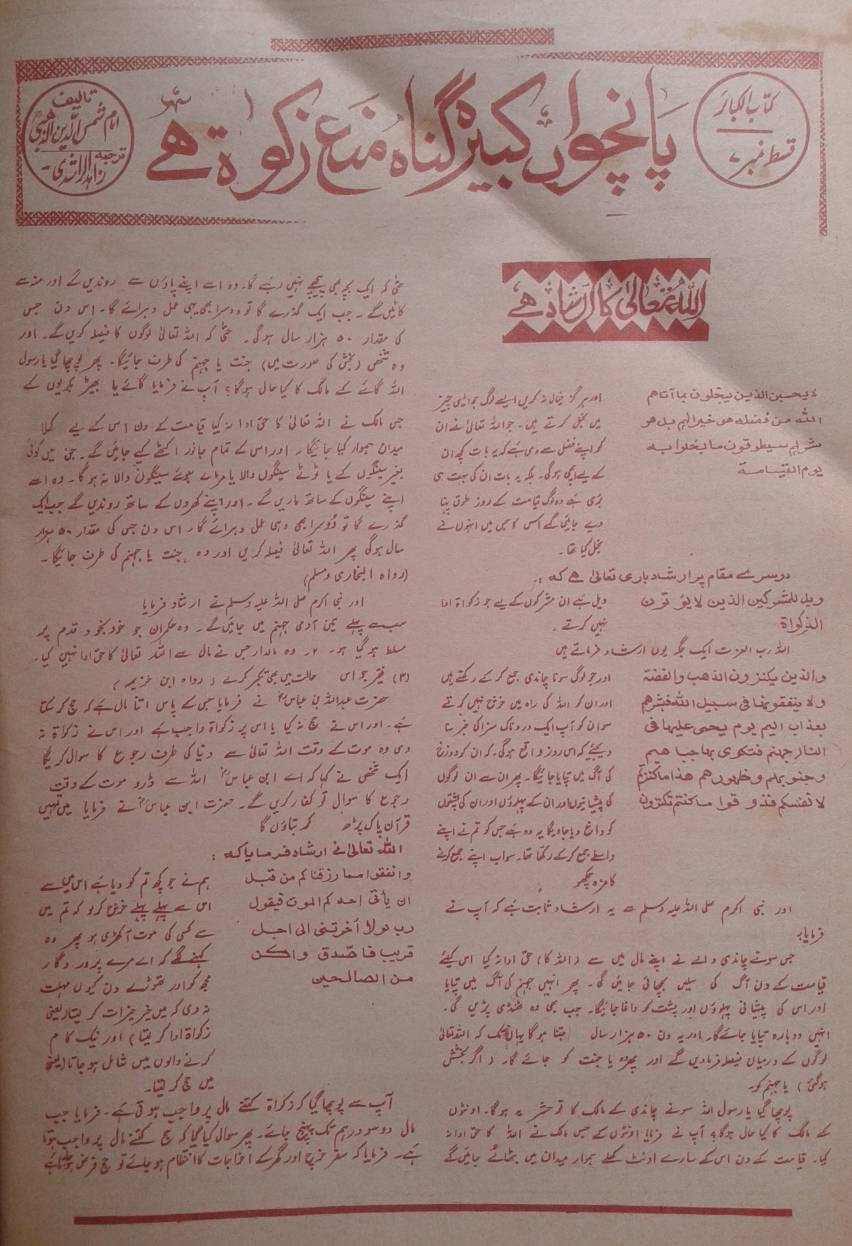 کتاب الکبائر
قسط نمبر ۷
پانچواں کبیرہ گناہ منع زکوٰۃ ہے
تالیف
امام شمس الدین الذہبی
ترجمہ
زاہد الراشدی
اللہ تعالیٰ کا ارشاد ہے
لا یحسبن الذین یبخلون بما آتاهم
الله من فضله هو خیرا لهم بل هو
شر لهم سیطوقون ما بخلوا به
یوم القیامة
اور ہرگز خیال نہ کریں ایسے لوگ جو ایسی چیز
میں بخل کرتے ہیں۔ جو اللہ تعالیٰ نے ان
کو اپنے فضل سے دی ہے کہ یہ بات کچھ ان
کے لیے اچھی ہوگی۔ بلکہ یہ بات ان کی بہت ہی
بڑی ہے وہ لوگ قیامت کے روز طوق پہنا
دیے جائیں گے اس کا جس میں انہوں نے
بخل کیا تھا۔
دوسرے مقام پر ارشاد باری تعالیٰ ہے کہ :۔
ویل للمشرکین الذین لا یؤتون
الزکواة
ویل ہے ان مشرکوں کے لیے جو زکواۃ ادا
نہیں کرتے۔
اللہ رب العزت ایک جگہ یوں ارشاد فرماتے ہیں
والذین یکنزون الذهب والفضة
ولا ینفقونها فی سبیل الله فبشرهم
بعذاب الیم یوم یحمی علیها فی
النار جهنم فتکوی بها جباههم
وجنوبهم وظهورهم هذا ما کنزتم
لانفسکم فذوقوا ما کنتم تکنزون
اور جو لوگ سونا چاندی جمع کر کے رکھتے ہیں
اور ان کو اللہ کی راہ میں خرچ نہیں کرتے
سو ان کو آپ ایک دردناک سزا کی خبر سنا
دیجئے کہ اس روز واقع ہوگی۔ کہ ان کو دوزخ
کی آگ میں تپایا جائیگا۔ پھر ان سے ان لوگوں
کی پیشانیوں اور ان کے پہلوؤں اور ان کی پشتوں
کو داغ دیا جاویگا یہ وہ ہے جس کو تم نے اپنے
واسطے جمع کر کے رکھا تھا۔ سو اب اپنے جمع کرنے
کا مزہ چکھو
اور نبی اکرم صلی اللہ علیہ وسلم سے یہ ارشاد ثابت ہے کہ آپ نے
فرمایا:
جس سونے چاندی والے نے اپنے مال میں سے (اللہ کا) حق ادا نہ کیا اس کیلئے
قیامت کے دن آگ کی سلیں بچھائی جائیں گی۔ پھر انہیں جہنم کی آگ میں تپایا
اور اس کی پیشانی پہلوؤں اور پشت کو داغا جائیگا۔ جب بھی وہ ٹھنڈی پڑیں گی۔
انہیں دوبارہ تپایا جائے گا۔ اور یہ دن ۵۰ ہزار سال جتنا ہوگا یہاں تک کہ اللہ تعالیٰ
لوگوں کے درمیان فیصلہ فرما دیں گے اور پھر وہ یا جنت کو جائے گا۔ (اگر بخشش
ہوگئی) یا جہنم کو۔
پوچھا گیا یا رسول اللہ سونے چاندی کے مالک کا تو حشر یہ ہوگا۔ اونٹوں
کے مالک کا کیا حال ہوگا؟ آپ نے فرمایا اونٹوں کے جس مالک نے اللہ کا حق ادا نہ
کیا۔ قیامت کے دن اس کے سارے اونٹ کھلے ہموار میدان میں بٹھائے جائیں گے
حتیٰ کہ ایک بچہ بھی پیچھے نہیں رہے گا۔ وہ اسے اپنے پاؤں سے روندیں گے اور منہ سے
کاٹیں گے۔ جب ایک گذرے گا تو دوسرا بھی یہی عمل دہرائے گا۔ اس دن جس
کی مقدار ۵۰ ہزار سال ہوگی۔ حتیٰ کہ اللہ تعالیٰ لوگوں کا فیصلہ کریں گے۔ اور
وہ شخص (بخشش کی صورت میں) جنت یا جہنم کی طرف جائیگا۔ پھر پوچھا گیا یا رسول
اللہ گائے کے مالک کا کیا حال ہوگا؟ آپ نے فرمایا گائے یا بھیڑ بکریوں کے
جس مالک نے اللہ تعالیٰ کا حق ادا نہ کیا قیامت کے دن اس کے لیے کھلا
میدان ہموار کیا جائیگا۔ اور اس کے تمام جانور اکٹھے کیے جائیں گے۔ جن میں کوئی
بغیر سینگوں کے یا ٹوٹے سینگوں والا یا مڑے ہوئے سینگوں والا نہ ہوگا۔ وہ اسے
اپنے سینگوں کے ساتھ ماریں گے۔ اور اپنے کھروں کے ساتھ روندیں گے جب ایک
گذرے گا تو دوسرا بھی وہی عمل دہرائے گا۔ اس دن جس کی مقدار ۵۰ ہزار
سال ہوگی پھر اللہ تعالیٰ فیصلہ کریں اور وہ جنت یا جہنم کی طرف جائیگا۔
(رواہ البخاری ومسلم)
اور نبی اکرم صلی اللہ علیہ وسلم نے ارشاد فرمایا
سب سے پہلے تین آدمی جہنم میں جائیں گے۔ وہ حکمران جو خود بخود قدم پر
مسلط ہوگیا ہو۔ ۲۔ وہ مالدار جس نے مال سے اللہ تعالیٰ کا حق ادا نہیں کیا۔
(۳) فقیر جو اس حالت میں بھی تکبر کرے (رواہ ابن خزیمہ)
حضرت عبداللہ بن عباسؓ نے فرمایا جس کے پاس اتنا مال ہے کہ حج کر سکتا
ہے۔ اور اس نے حج نہ کیا یا اس پر زکواۃ واجب ہے اور اس نے زکواۃ نہ
دی وہ موت کے وقت اللہ تعالیٰ سے دنیا کی طرف رجوع کا سوال کریگا
ایک شخص نے کہا کہ اے ابن عباسؓ اللہ سے ڈرو موت کے وقت
رجوع کا سوال تو کفار کریں گے۔ حضرت ابن عباسؓ نے فرمایا میں تمہیں
قرآن پاک پڑھ کر بتاؤں گا
اللہ تعالیٰ نے ارشاد فرمایا کہ :
وانفقوا مما رزقناکم من قبل
ان یأتی احدکم الموت فیقول
رب لولا أخرتنی الی اجل
قریب فاصدق واکن
من الصالحین
ہم نے جو کچھ تم کو دیا ہے اس میں سے
اس سے پہلے پہلے خرچ کرو کہ تم میں
سے کسی کی موت آ کھڑی ہو پھر وہ
کہنے لگے کہ اے مرے پروردگار
مجھ کو اور تھوڑے دن کیوں مہلت
نہ دی کہ میں خیر خیرات کر لیتا (یعنی
زکواۃ ادا کر لیتا) اور نیک کام
کرنے والوں میں شامل ہو جاتا (یعنی
میں حج کر لیتا۔
آپ سے پوچھا گیا کہ زکواۃ کتنے مال پر واجب ہوتی ہے۔ فرمایا جب
مال دو سو درہم تک پہنچ جائے۔ پھر سوال کیا گیا کہ حج کتنے مال پر واجب ہوتا
ہے۔ فرمایا کہ سفر خرچ اور گھر کے اخراجات کا انتظام ہو جائے تو حج فرض ہو جاتا ہے